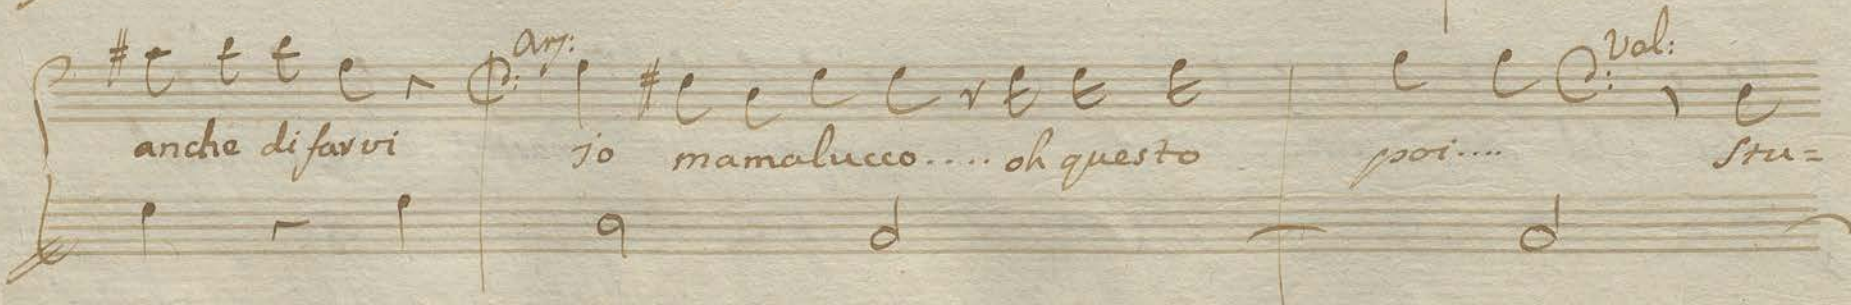 Arj: Val:
anche di farvi io mamalucco.... oh questo poi.... Stu=